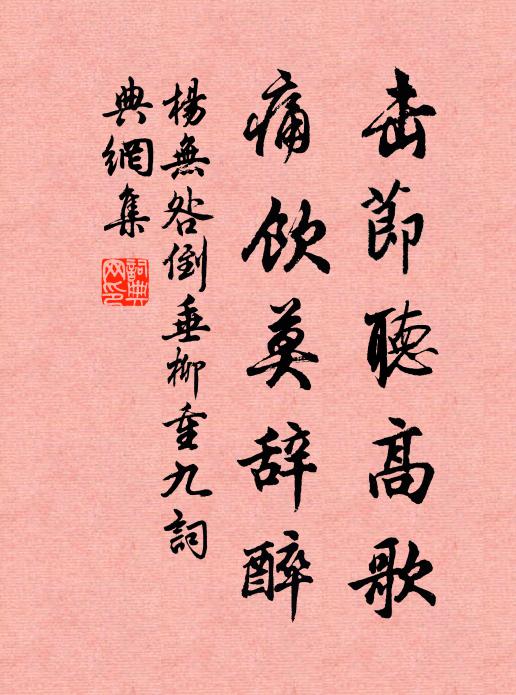 击節聽高歌
痛飲莫辞醉
楊無咎倒垂柳重九詞
典網集
詞典網印